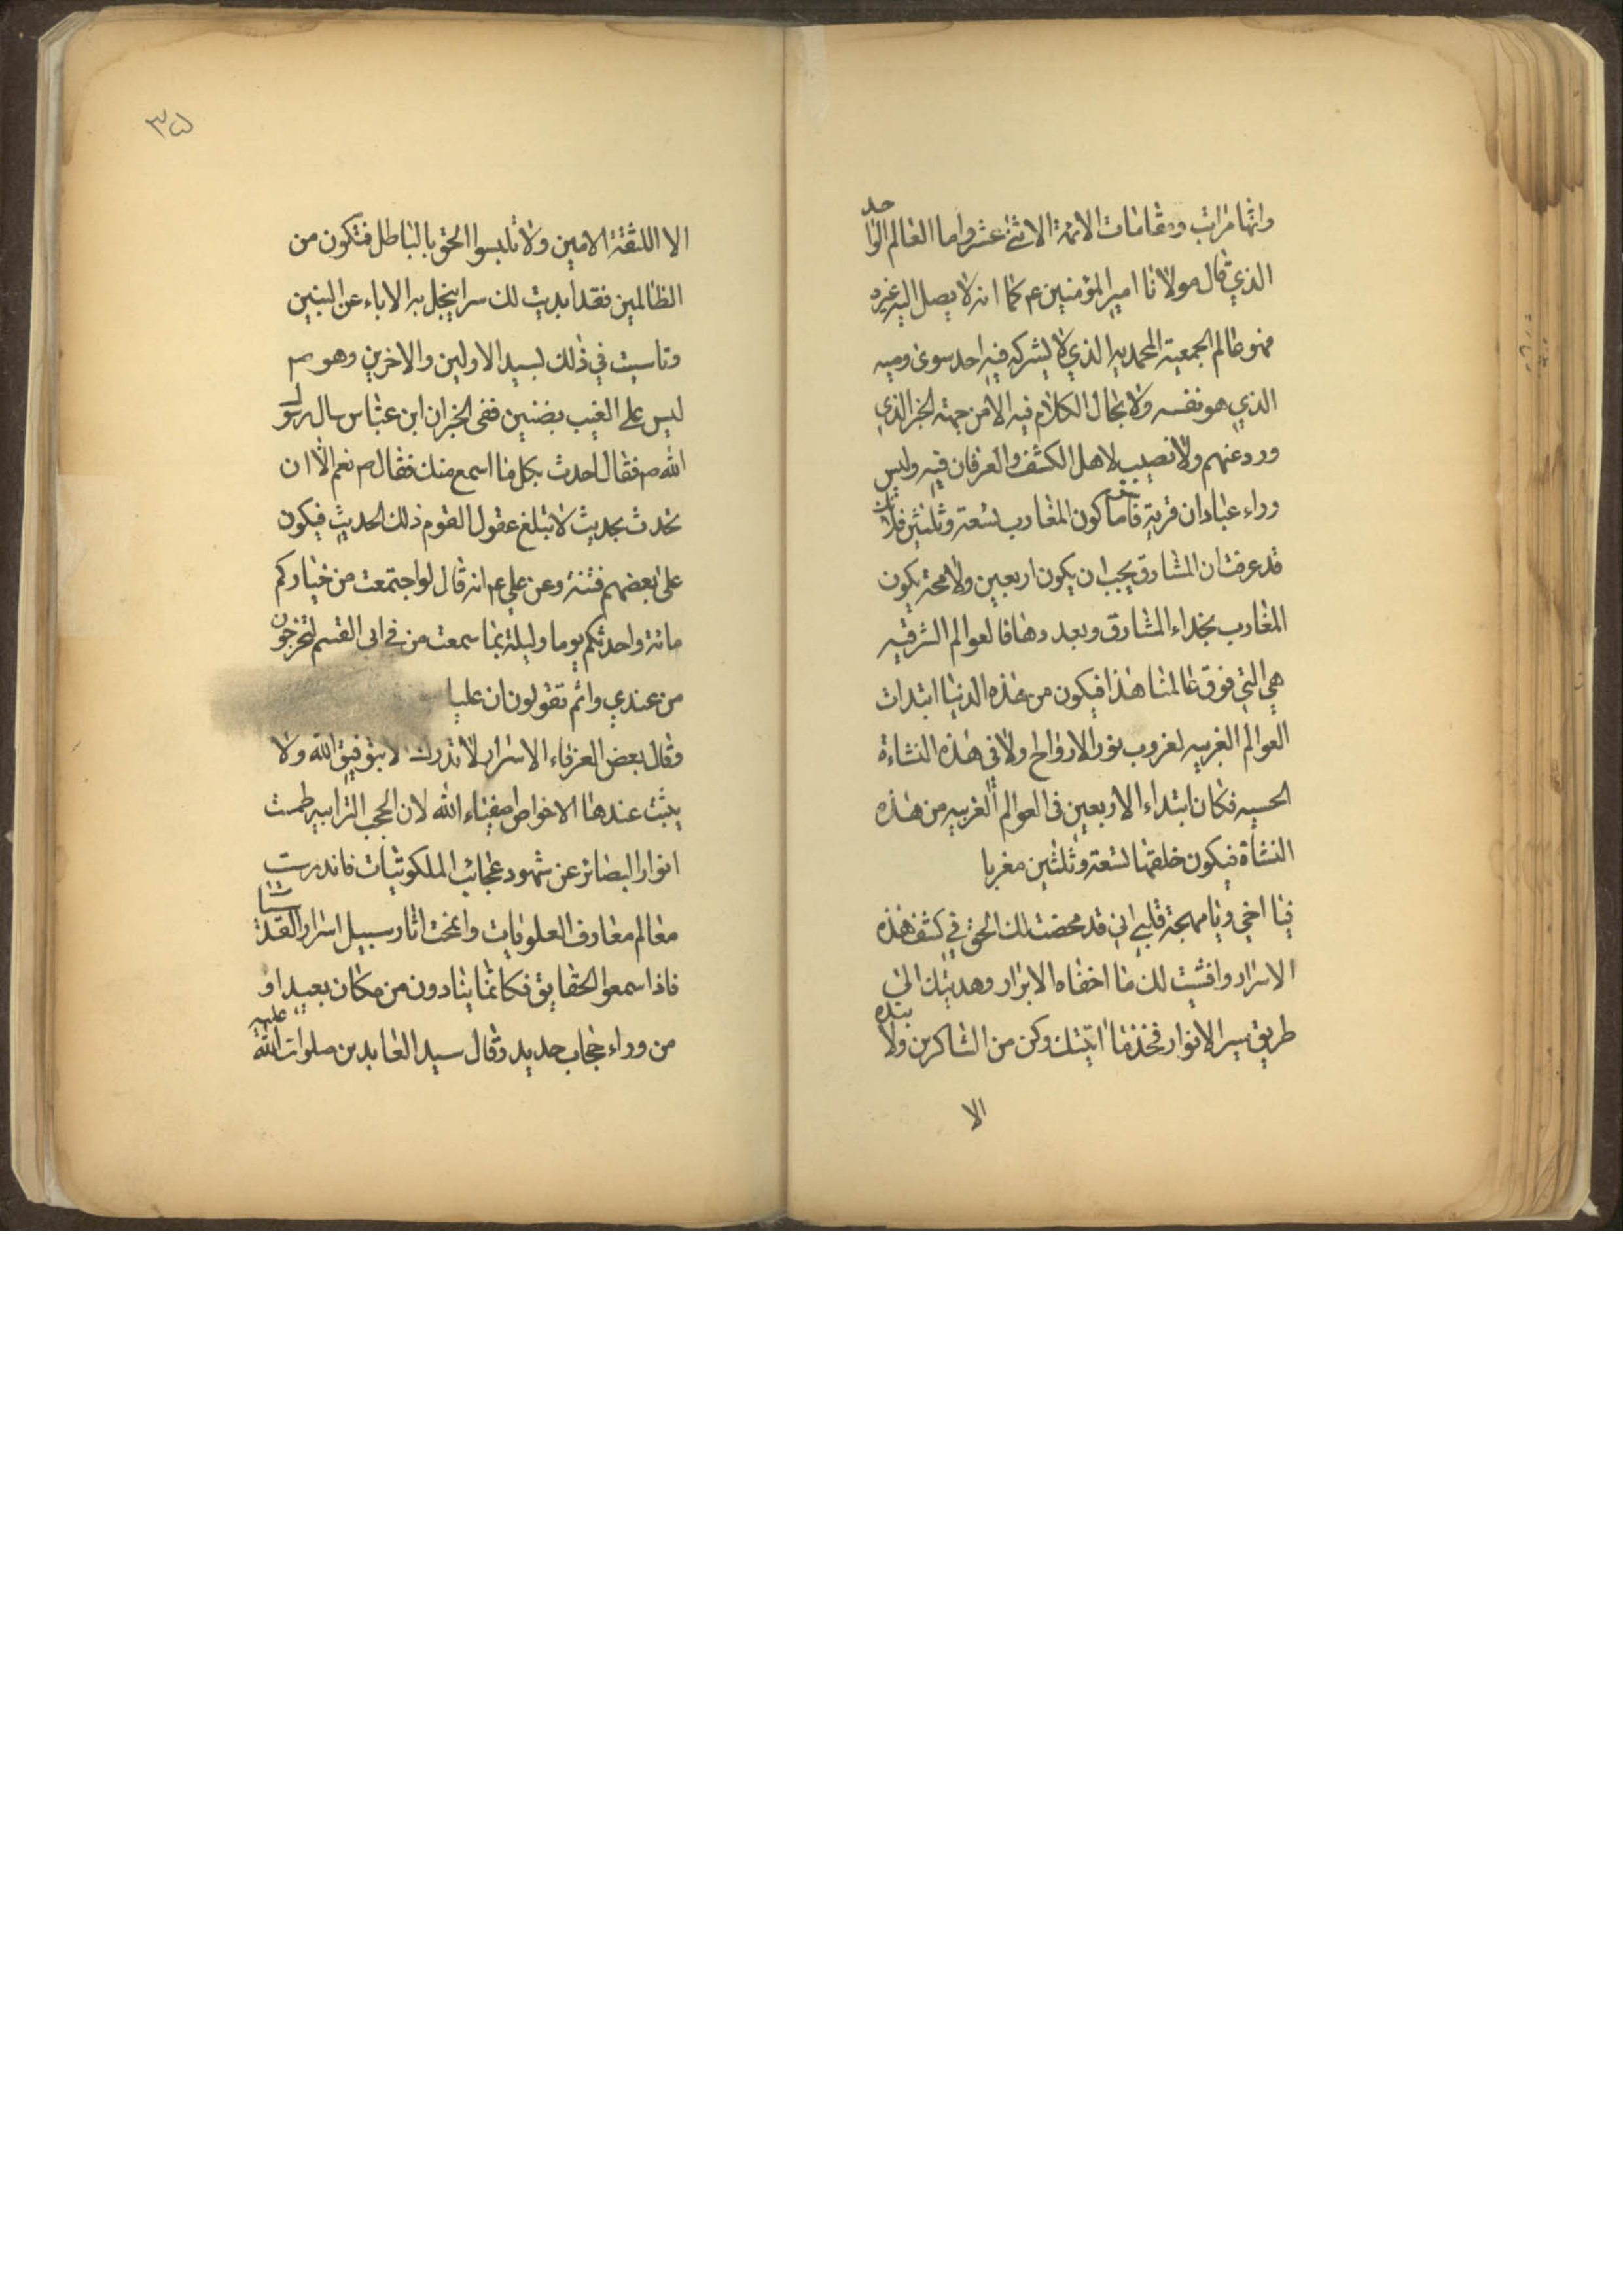 وانها مراتب ومقامات الائمة الاثنى عشر واما العالم الواحد
الذي قال مولانا امير المؤمنين ع كما انه لا يصل اليه غيره
فهو عالم الجمعية المحمديه الذي لا يشركه فيه احد سوى وصيه
الذي هو نفسه ولا مجال الكلام فيه الا من جهة الخبر الذي
ورد عنهم ولا نصيب لاهل الكشف والعرفان فيه وليس
وراء عبادان قرية فاما كون المغارب تسعة وثلثين فلانك
قد عرفت ان المشارق يجب ان يكون اربعين ولا محة يكون
المغارب بحذاء المشارق وبعددها فالعوالم الشرقيه
هي التي فوق عالمنا هذا فيكون من هذه الدنيا ابتدات
العوالم الغربيه لغروب نور الارواح ولا في هذه النشاءة
الحسيه فكان ابتداء الاربعين في العوالم الغربيه من هذه
النشأة فيكون خلقها تسعة وثلثين مغربا
فيا اخي ويا مهجة قلبي اني قد محضت لك الحق في كشف هذه
الاسرار وافشيت لك ما اخفاه الابرار وهديتك الى
طريق سير الانوار فخذ ما اتيتك وكن من الشاكرين ولا تبده
الا
٣٥
الا اللثقة الامين ولا تلبسوا الحق بالباطل فتكون من
الظالمين فقد ابديت لك سرا يبخل به الاباء عن البنين
وتاسيت في ذلك لسيد الاولين والاخرين وهو ص
ليس على الغيب بضنين ففي الخبر ان ابن عباس سال رسول
الله ص فقال احدث بكل ما اسمع منك فقال ص نعم الا ان
تحدث بحديث لا تبلغ عقول القوم ذلك الحديث فيكون
على بعضهم فتنة وعن علي ع انه قال لو اجتمعت من خياركم
مائة واحدثكم يوما وليلة بما سمعت من في ابي القسم لتخرجون
من عندي وانتم تقولون ان عليا
وقال بعض العرفاء الاسرار لا تدرك الا بتوفيق الله ولا
يثبت عندها الا خواص صفياء الله لان الحجب الترابيه طمست
انوار البصائر عن شهود عجائب الملكوتيات فاندرست
معالم معارف العلويات وانمحت اثار سبيل اسرار القدسيات
فاذا سمعوا الحقايق فكانما ينادون من مكان بعيد او
من وراء حجاب حديد وقال سيد العابدين صلوات الله عليه